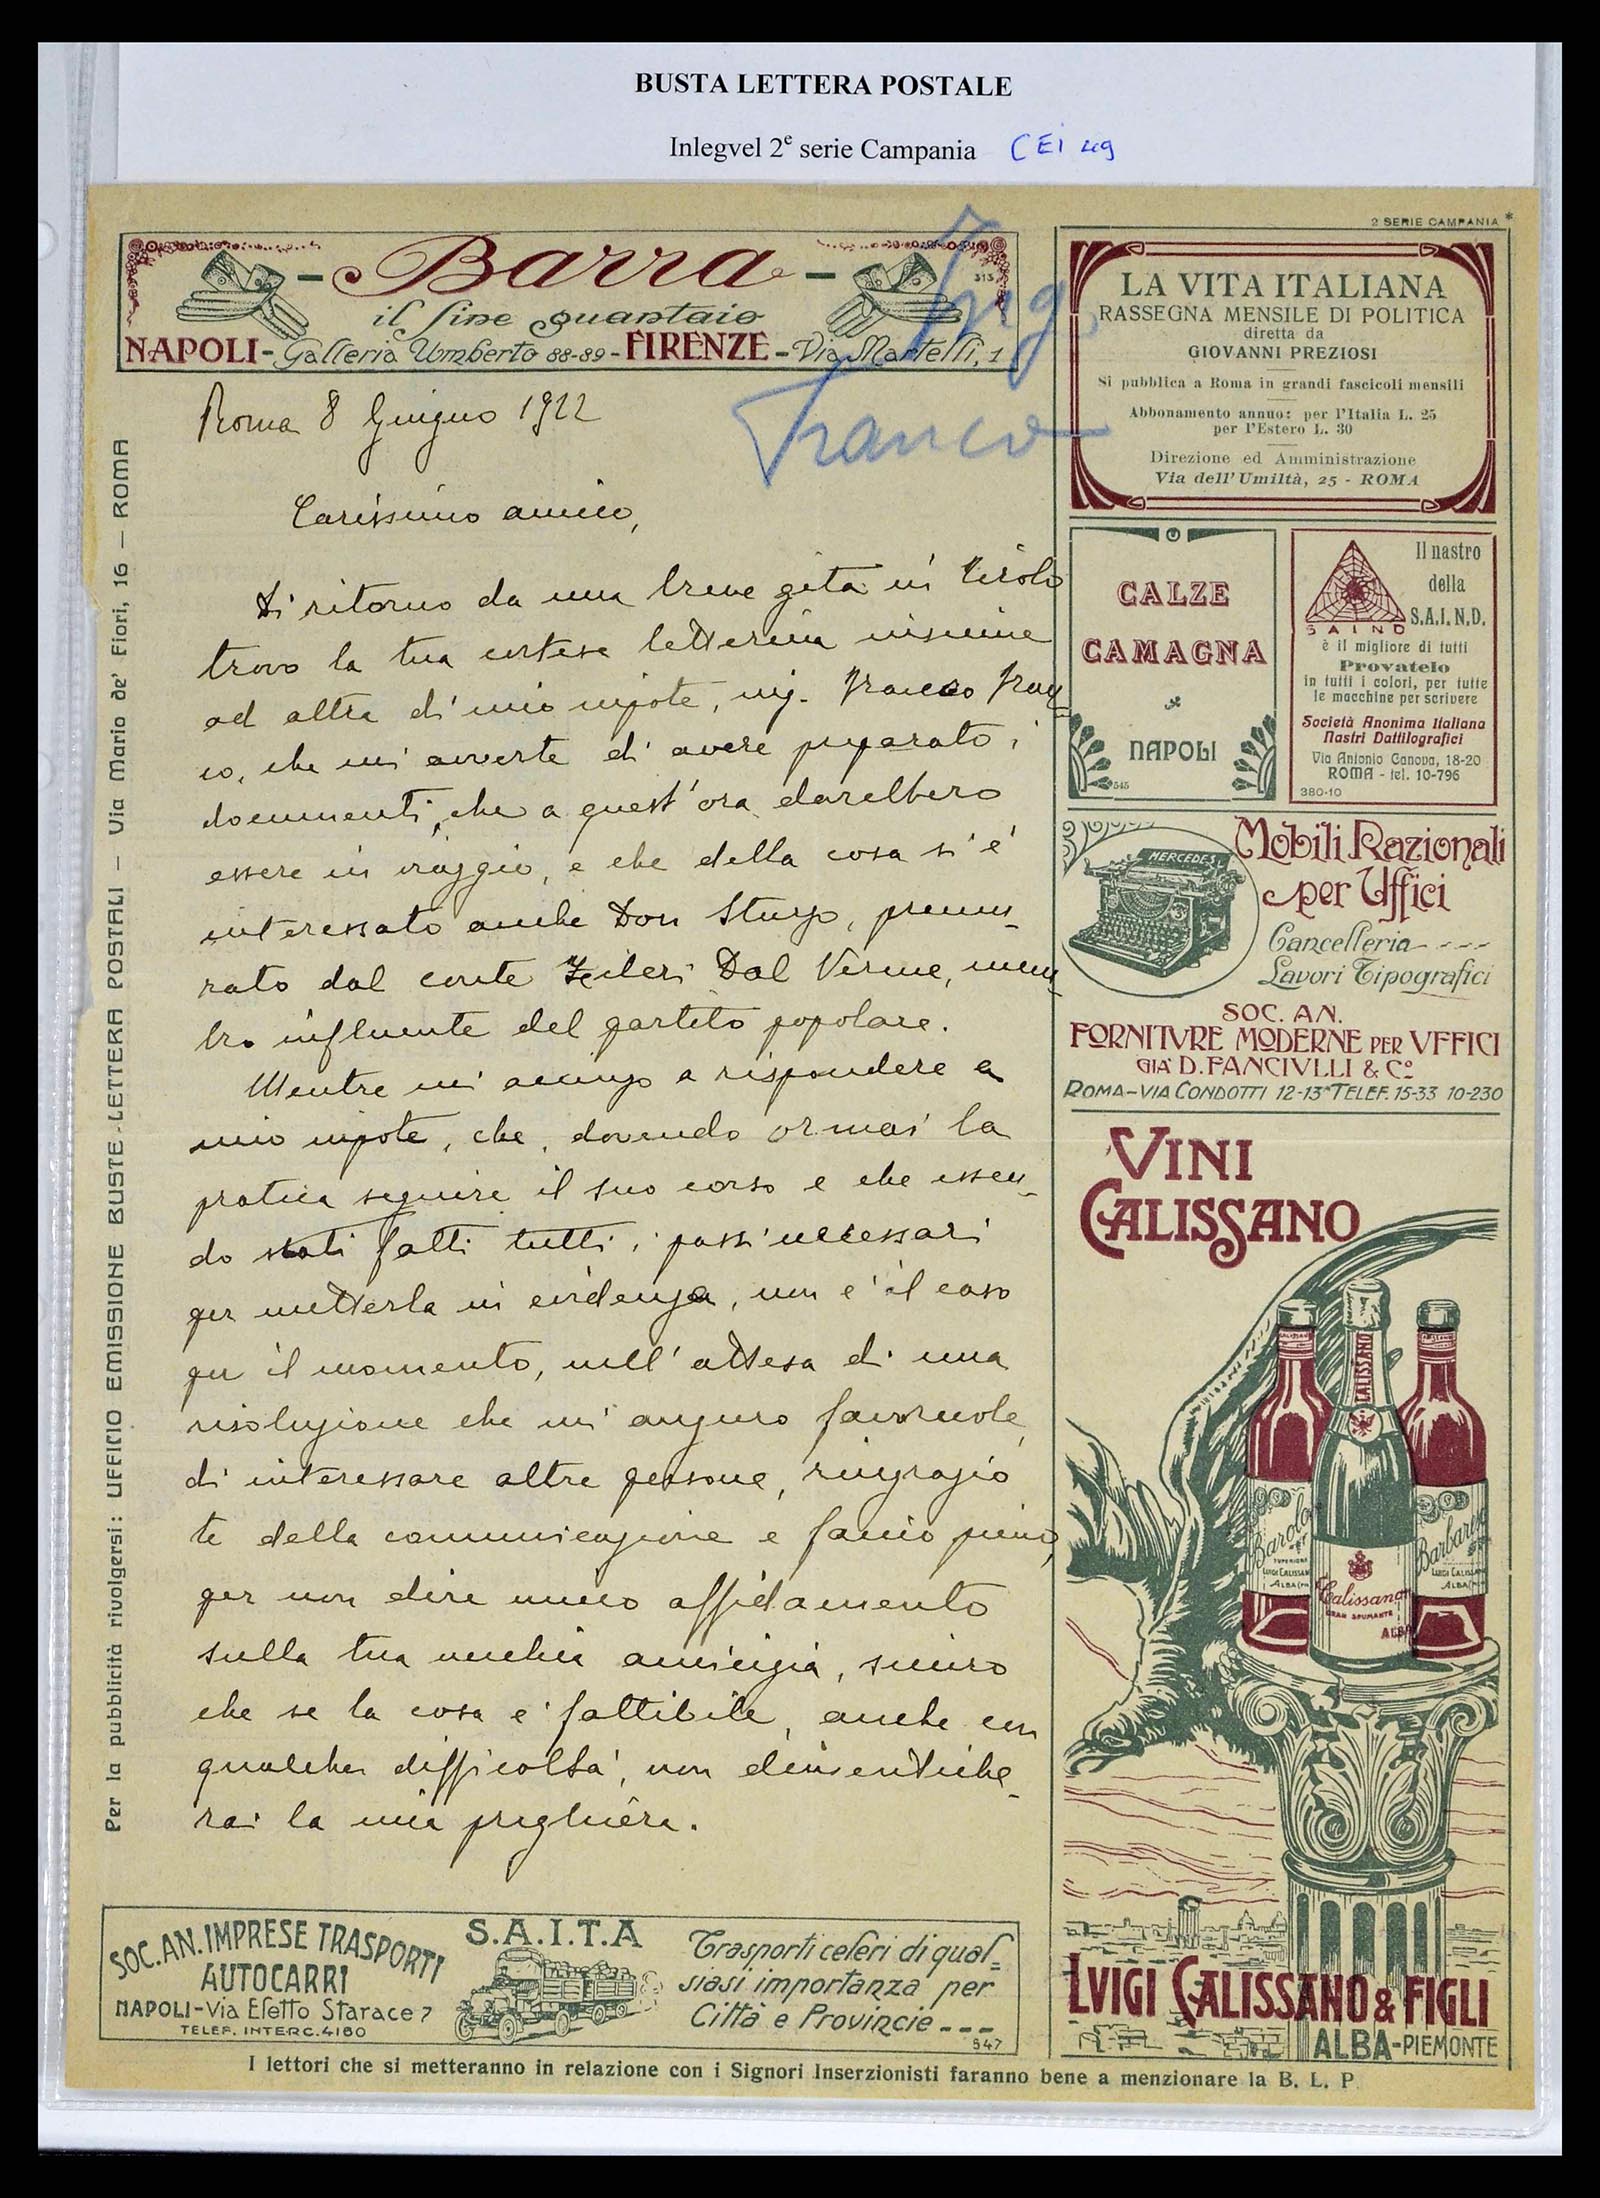 BUSTA LETTERA POSTALE
Inlegvel 2e serie Campania CEI 49
2 SERIE CAMPANIA *
- Barra -
313
il fine guantaio
NAPOLI - Galleria Umberto 88-89 - FIRENZE - Via Martelli, 1
Ing.
Franco
Roma 8 Giugno 1922
Carissimo amico,
Di ritorno da una breve gita in Tirolo
trovo la tua cortese letterina insieme
ad altra di mio nipote, ing. Franco Fran=
co, che mi avverte di avere preparato i
documenti, che a quest'ora darebbero
essere in viaggio, e che della cosa si è
interessato anche Don Sturzo, premu-
rato dal conte Zileri Dal Verme, mem-
bro influente del partito popolare.
Mentre mi accingo a rispondere a
mio nipote, che, dovendo ormai la
pratica seguire il suo corso e che essen-
do stati fatti tutti i passi necessari
per metterla in evidenza, non è il caso
per il momento, nell'attesa di una
risoluzione che mi auguro favorevole,
di interessare altre persone, ringrazio
te della comunicazione e faccio pieno,
per non dire unico affidamento
sulla tua vecchia amicizia, sicuro
che se la cosa è fattibile, anche con
qualche difficoltà, non dimentiche-
rai la mia preghiera.
Per la pubblicità rivolgersi: UFFICIO EMISSIONE BUSTE-LETTERA POSTALI - Via Mario de' Fiori, 16 - ROMA
LA VITA ITALIANA
RASSEGNA MENSILE DI POLITICA
diretta da
GIOVANNI PREZIOSI
Si pubblica a Roma in grandi fascicoli mensili
Abbonamento annuo: per l'Italia L. 25
per l'Estero L. 30
Direzione ed Amministrazione
Via dell'Umiltà, 25 - ROMA
CALZE
CAMAGNA
NAPOLI
545
Il nastro
della
S.A.I.N.D.
SAIND
è il migliore di tutti
Provatelo
in tutti i colori, per tutte
le macchine per scrivere
Società Anonima Italiana
Nastri Dattilografici
Via Antonio Canova, 18-20
ROMA - tel. 10-796
380-10
MERCEDES
Mobili Razionali
per Uffici
Cancelleria ----
Lavori Tipografici
SOC. AN.
FORNITVRE MODERNE PER VFFICI
GIA' D. FANCIVLLI & Co
ROMA-VIA CONDOTTI 12-13A TELEF. 15-33 10-230
VINI
CALISSANO
CALISSANO
CALISSANO
Barolo
SUPERIORE
LUIGI CALISSAN
ALBA
Calissano
GRAN SPUMANTE
ALBA
Barbares
LUIGI CALISSA
ALBA
LVIGI CALISSANO & FIGLI
ALBA-PIEMONTE
SOC. AN. IMPRESE TRASPORTI
AUTOCARRI
NAPOLI-Via Efetto Starace 7
TELEF. INTERC. 4160
S.A.I.T.A
Trasporti celeri di qual=
siasi importanza per
Città e Provincie ---
547
I lettori che si metteranno in relazione con i Signori Inserzionisti faranno bene a menzionare la B. L. P.